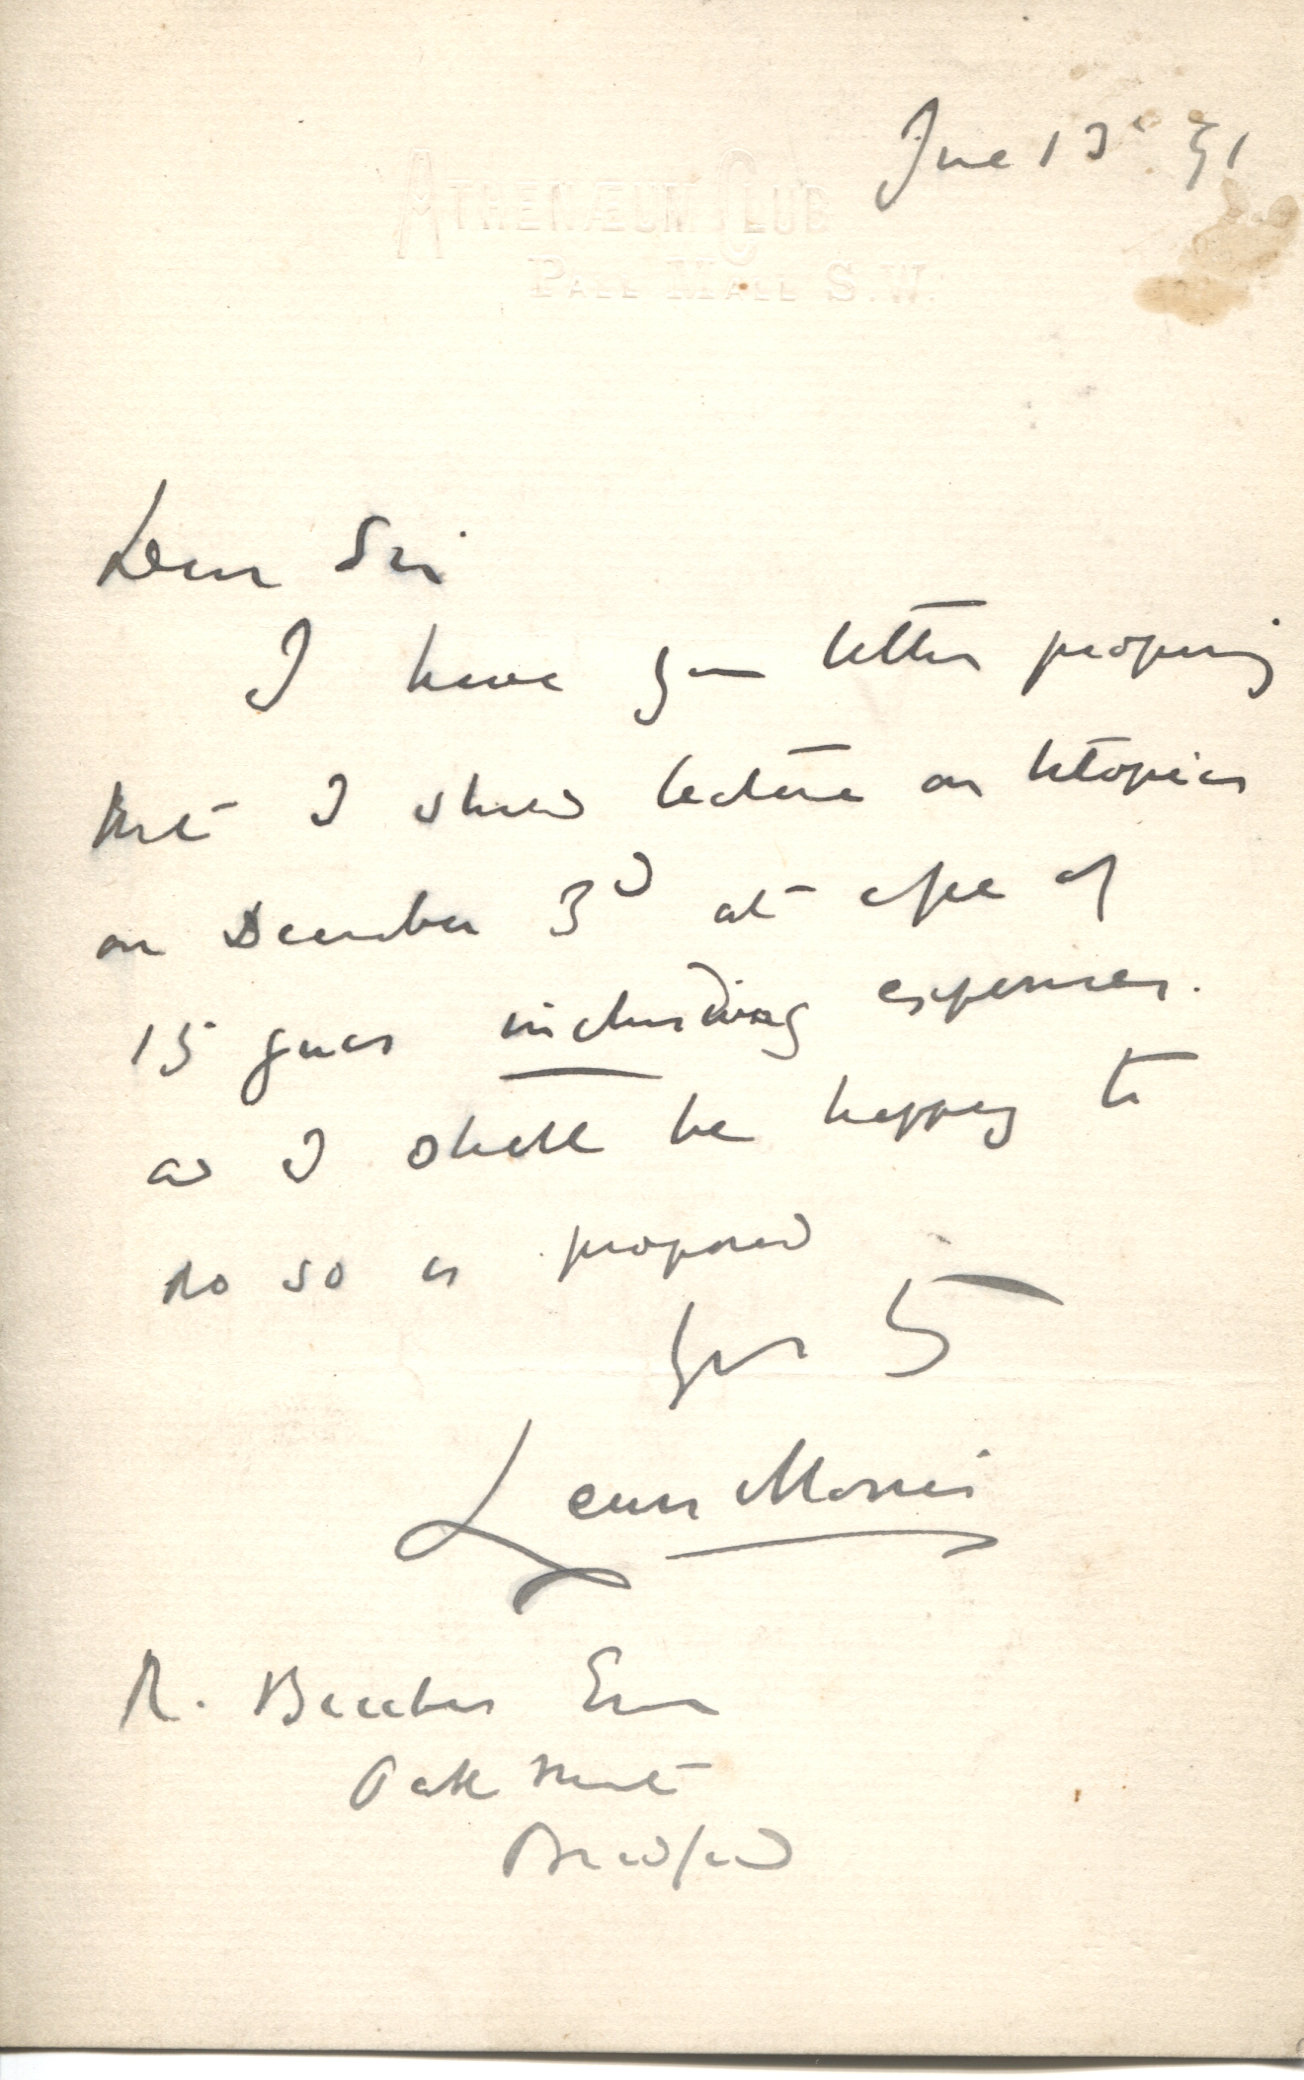 June 13 91
ATHENÆUM CLUB
PALL MALL S.W.
Dear Sir
I have your letter proposing
that I should lecture on Utopias
on December 3d at a fee of
15 gneas including expenses.
as I shall be happy to
do so as proposed
Yrs
Lewis Morris
R. Beecher Esq
Oak Mount
Bradford